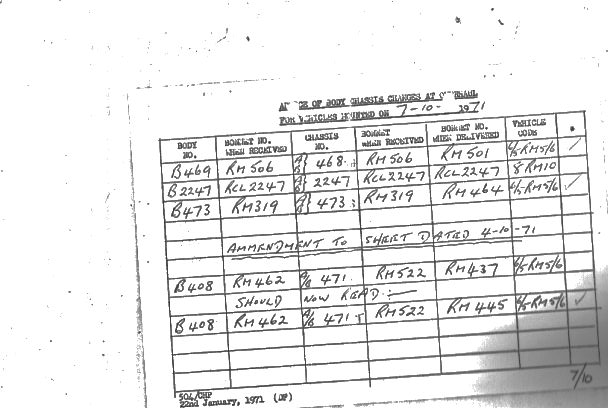 OF BODY CHASSIS CHANGES AT
FOR VEHICLES MOUNTED ON 7-10- 1971
BODY NO. BONNET NO. WHEN RECEIVED CHASSIS NO. BONNET WHEN RECEIVED BONNET NO. WHEN DELIVERED VEHICLE CODE
B469 RM506 A/B} 468 RM506 RM501 6/5RM5/6 ✓
B2247 RCL2247 A/B} 2247 RCL2247 RCL2247 8RM10
B473 RM319 A/B} 473 RM319 RM464 6/5RM5/6 ✓
AMMENDMENT TO SHEET DATED 4-10-71
B408 RM462 A/B 471 RM522 RM437 6/5RM5/6
SHOULD NOW READ:-
B408 RM462 A/B 471 RM522 RM445 6/5RM5/6 ✓
7/10
504/CHP
22nd January, 1971 (DP)